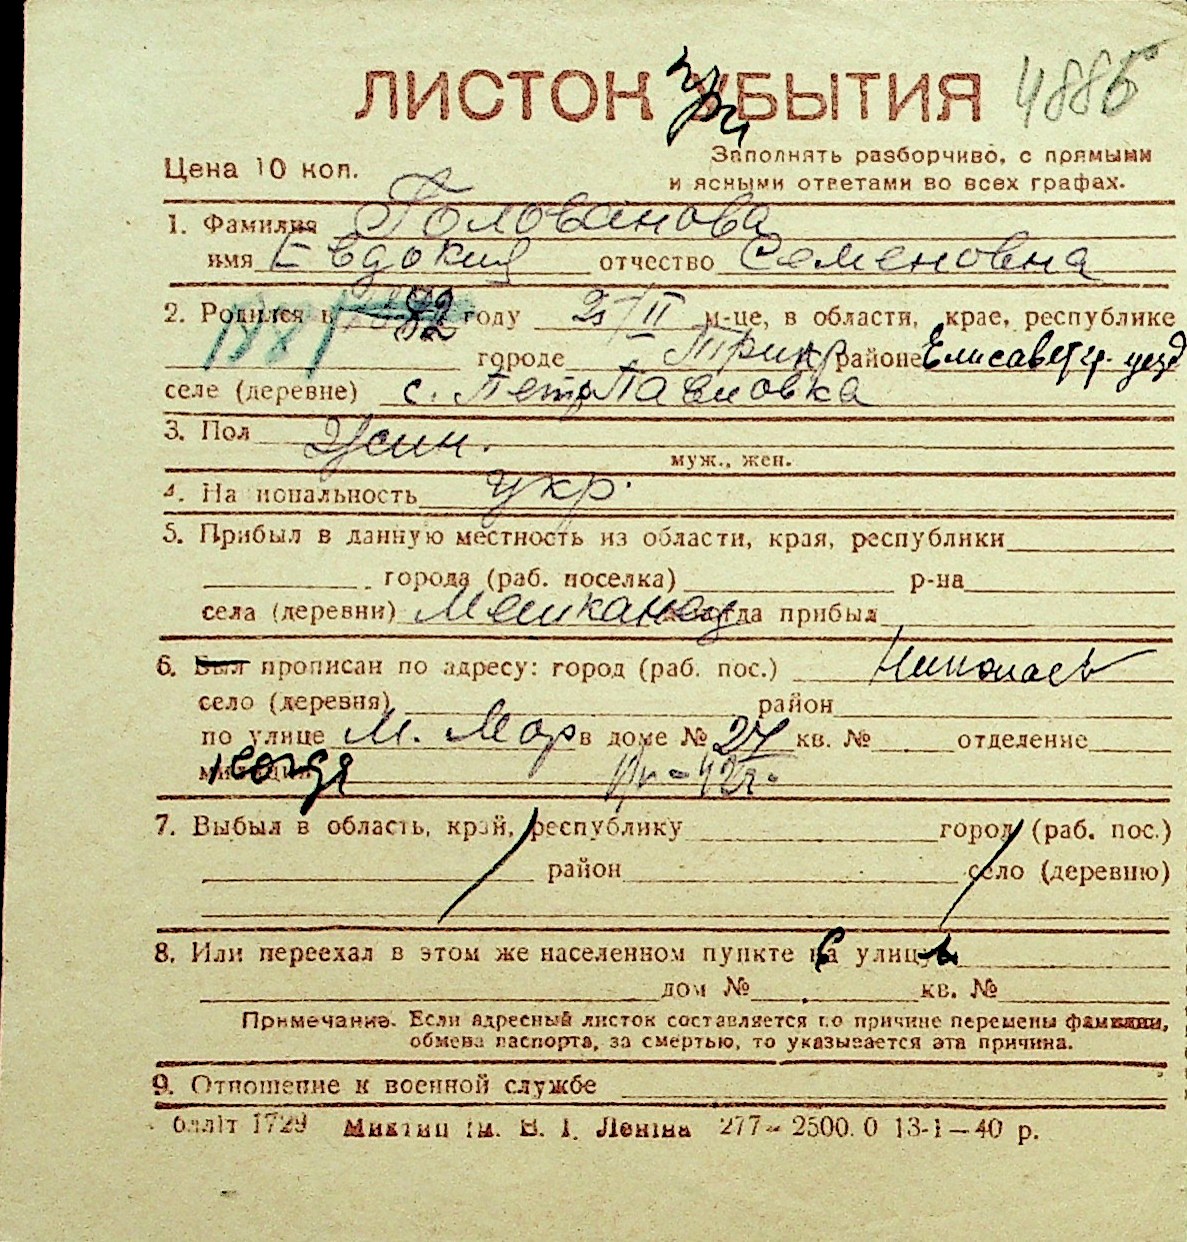 ЛИСТОК при УБЫТИЯ 4886
Цена 10 коп. Заполнять разборчиво, с прямыми
и ясными ответами во всех графах.
1. Фамилия Голованова
имя Евдокия отчество Семеновна
2. Родился в году м-це, в области, крае, республике
городе районе Елисаветгр. уезд
селе (деревне) с. Петропавловка
3. Пол Жин.
муж., жен.
4. Национальность укр.
5. Прибыл в данную местность из области, края, республики
города (раб. поселка) р-на
села (деревни) Мешканец когда прибыл
6. Был прописан по адресу: город (раб. пос.) Николаев
село (деревня) район
по улице М. Мор в доме № 27 кв. № отделение
милиции когда
7. Выбыл в область, край, республику город (раб. пос.)
район село (деревню)
8. Или переехал в этом же населенном пункте на улицу
дом № кв. №
Примечание. Если адресный листок составляется по причине перемены фамилии,
обмена паспорта, за смертью, то указывается эта причина.
9. Отношение к военной службе
1729 ім. В. І. Леніна 277 – 2500. 0 13-1—40 р.